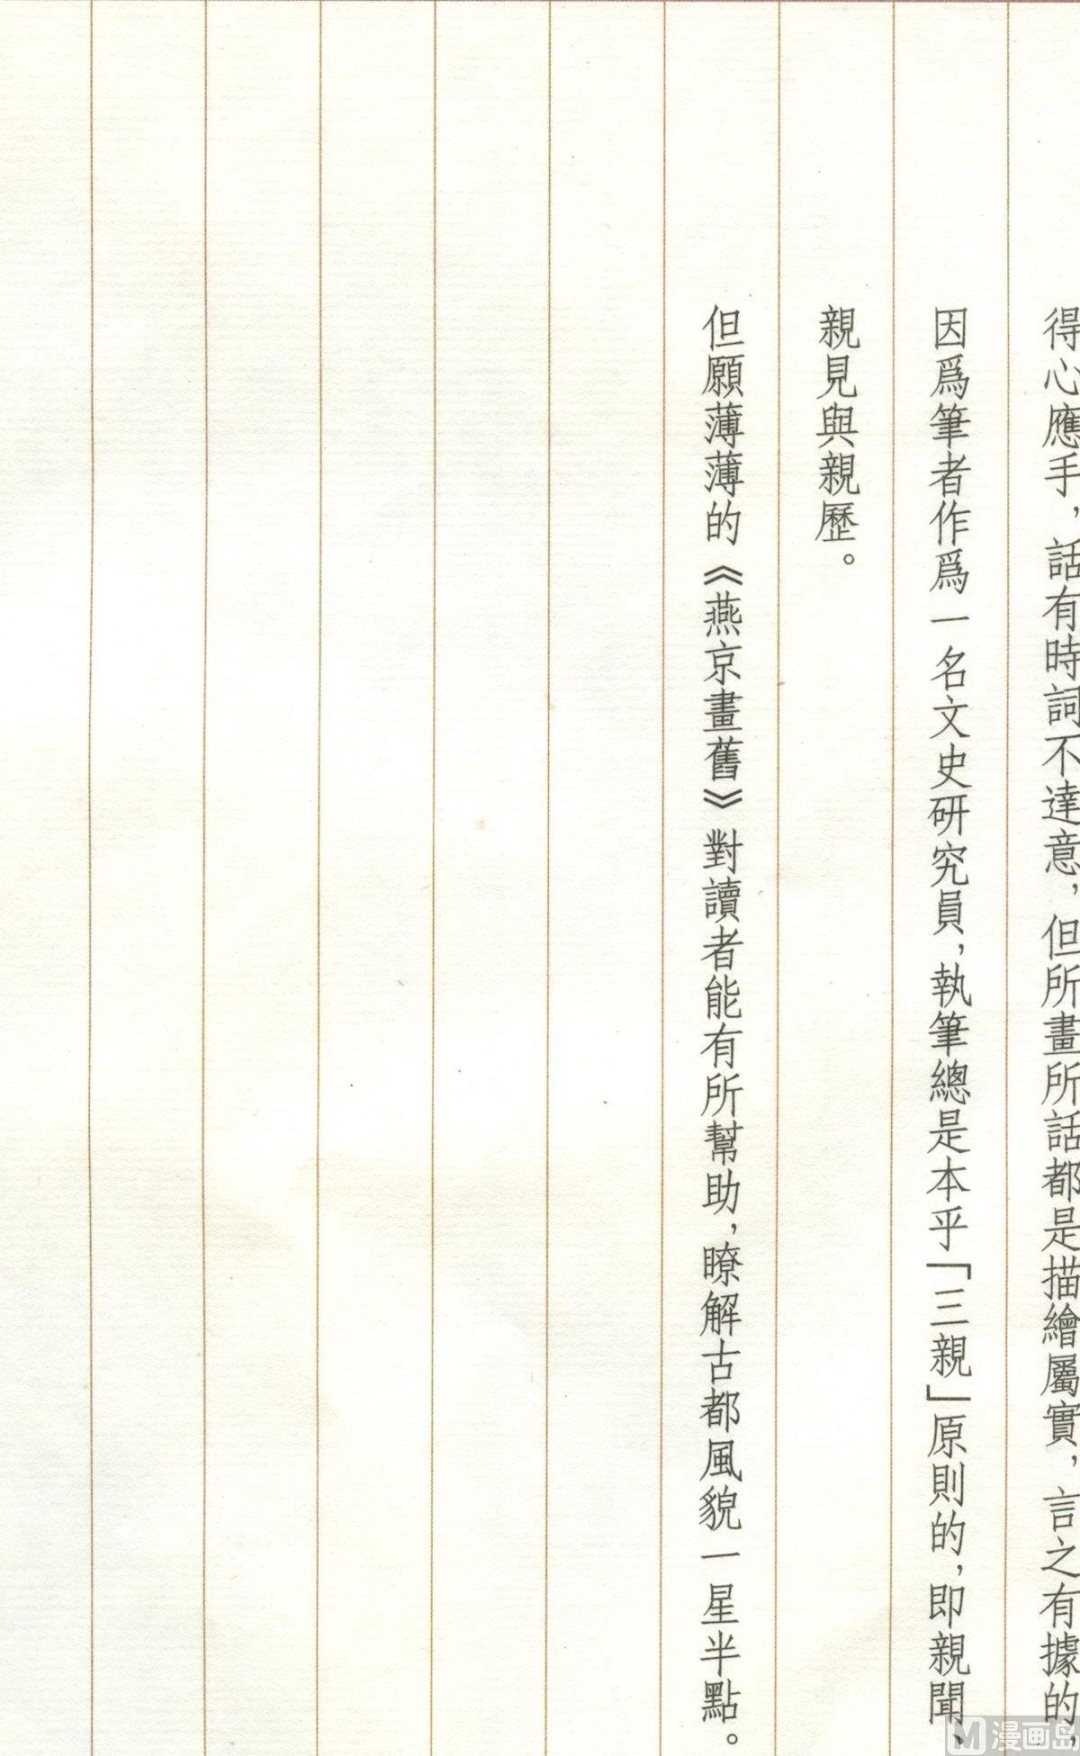 得心應手，話有時詞不達意，但所畫所話都是描繪屬實，言之有據的，
因爲筆者作爲一名文史研究員，執筆總是本乎「三親」原則的，即親聞、
親見與親歷。
但願薄薄的《燕京畫舊》對讀者能有所幫助，瞭解古都風貌一星半點。
M 漫画岛